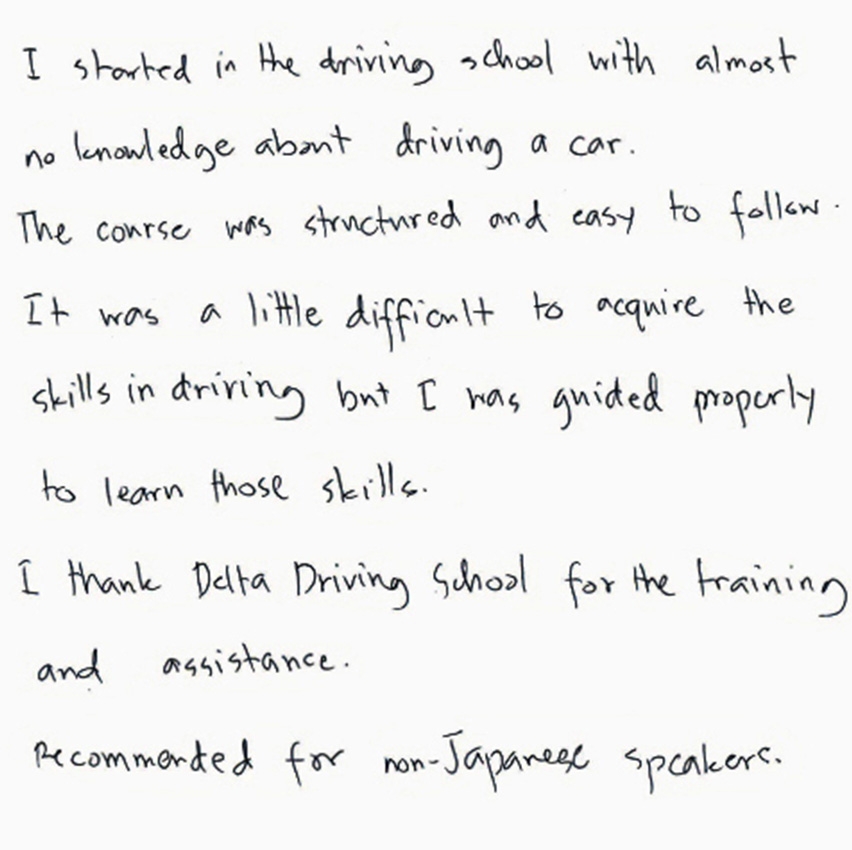 I started in the driving school with almost
no knowledge about driving a car.
The course was structured and easy to follow.
It was a little difficult to acquire the
skills in driving but I was guided properly
to learn those skills.
I thank Delta Driving School for the training
and assistance.
Recommended for non-Japanese speakers.